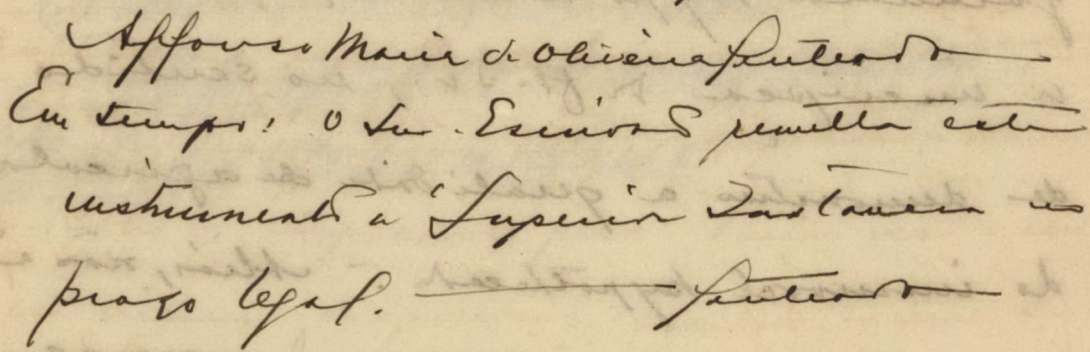 Affonso Maria de Oliveira Penteado
Em tempo: O Snr. Escrivão remetta este
instrumento a' Superior Instancia no
prazo legal. — Penteado